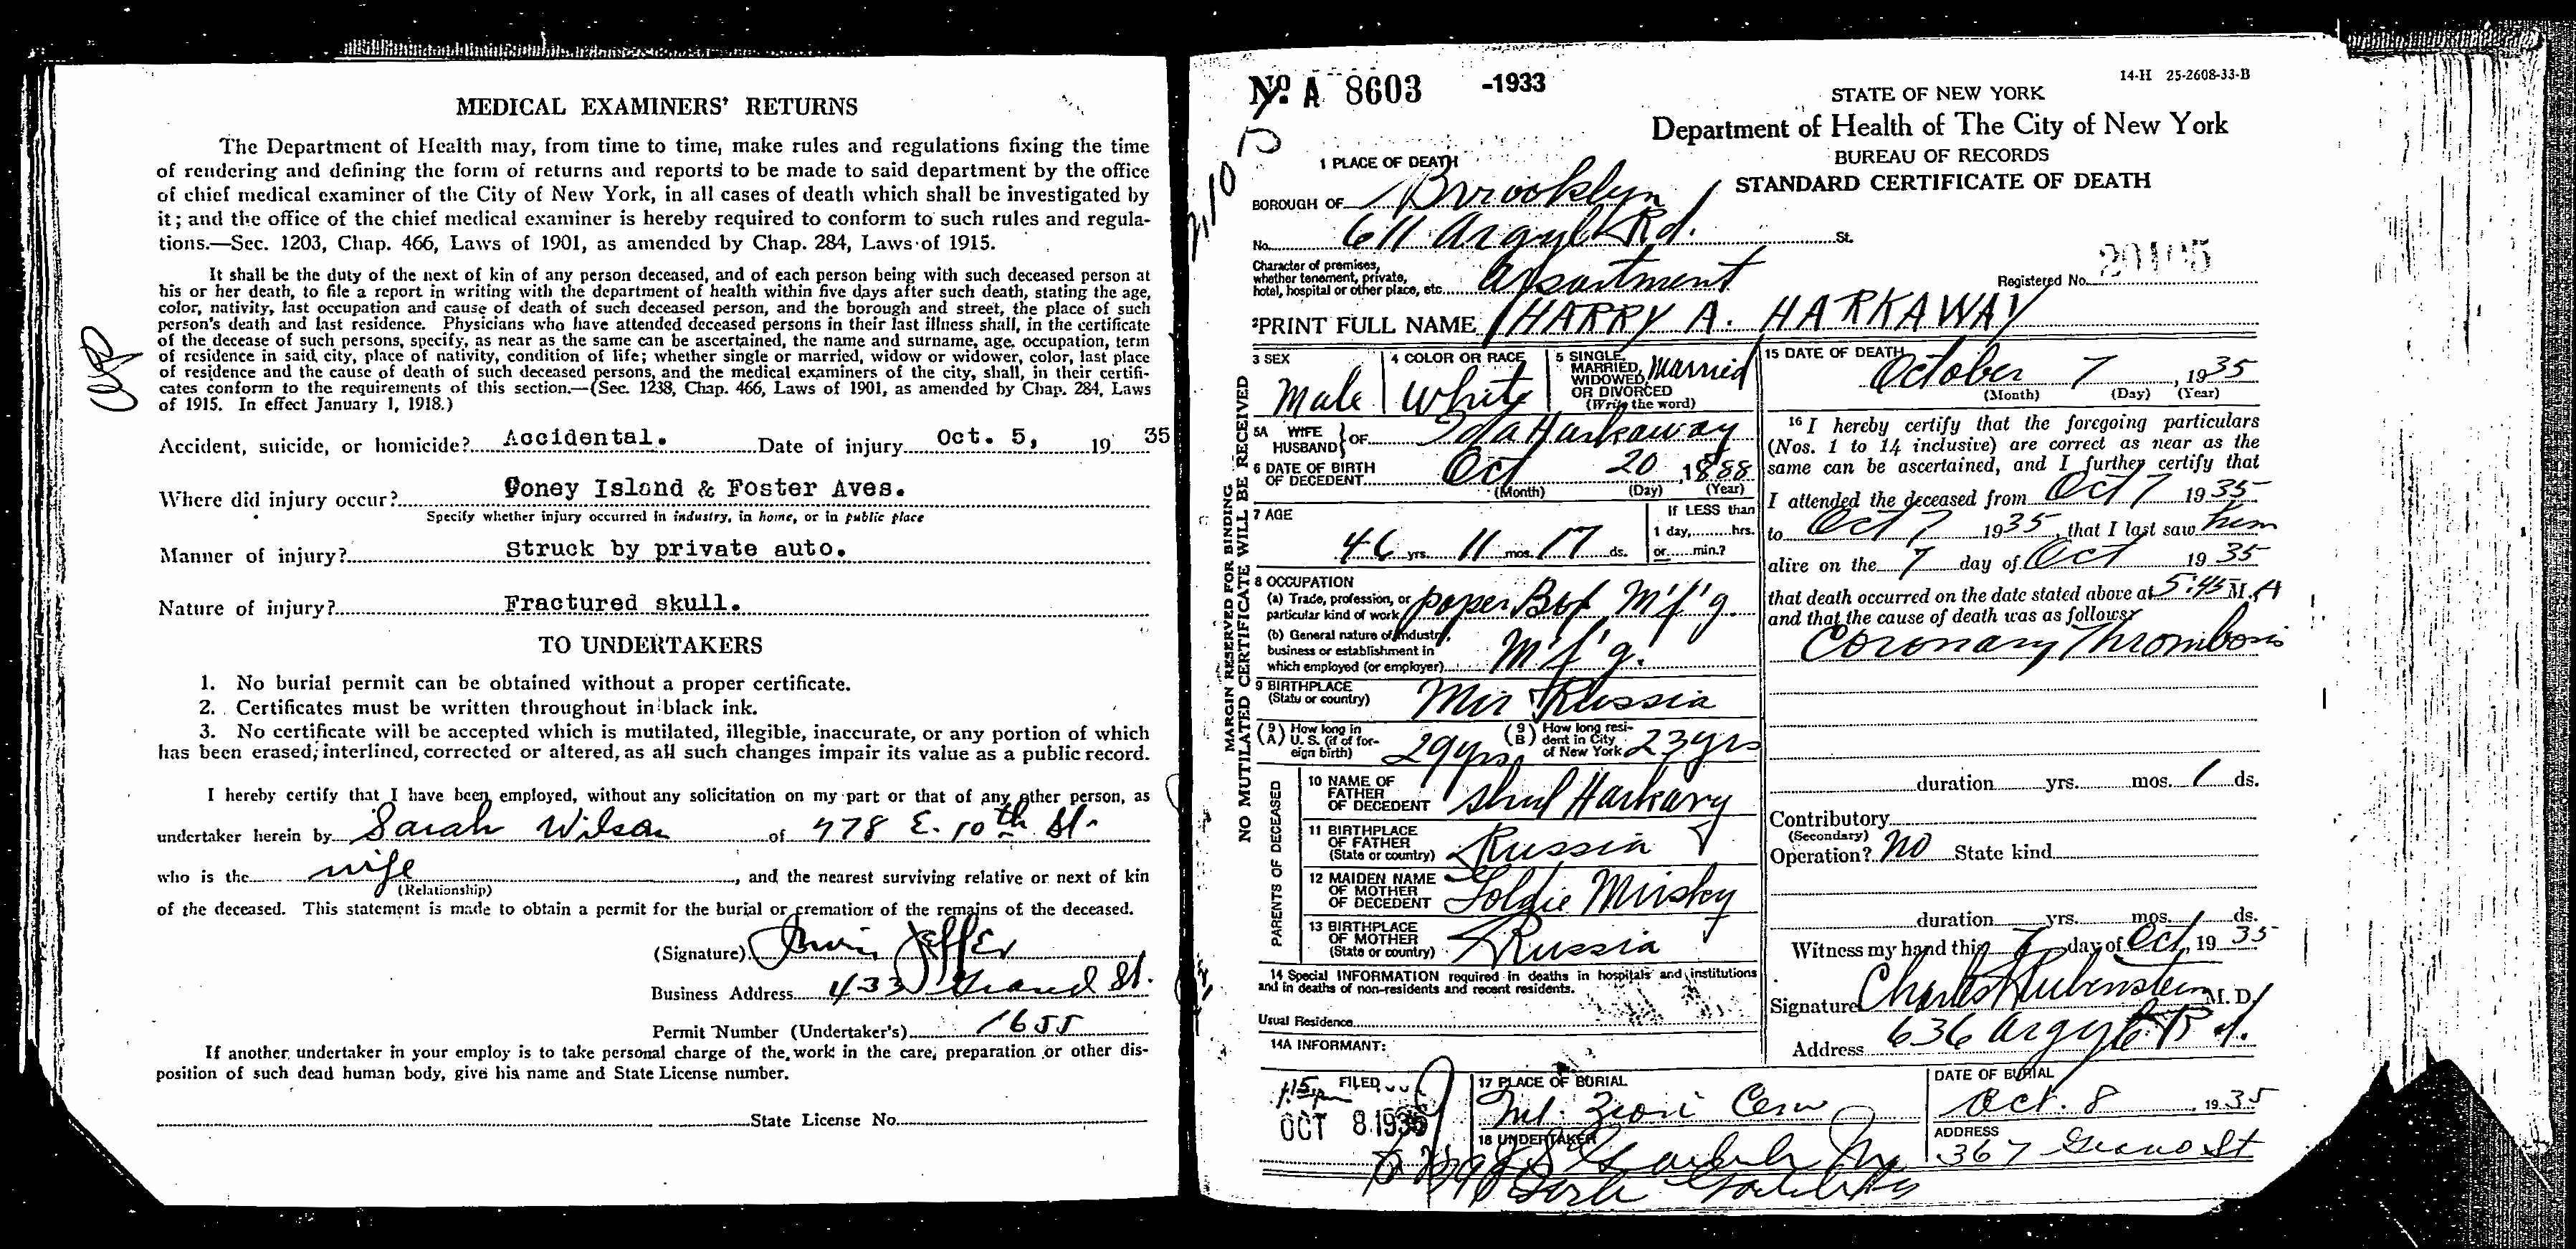 MEDICAL EXAMINERS' RETURNS
The Department of Health may, from time to time, make rules and regulations fixing the time
of rendering and defining the form of returns and reports to be made to said department by the office
of chief medical examiner of the City of New York, in all cases of death which shall be investigated by
it; and the office of the chief medical examiner is hereby required to conform to such rules and regula-
tions.—Sec. 1203, Chap. 466, Laws of 1901, as amended by Chap. 284, Laws of 1915.
It shall be the duty of the next of kin of any person deceased, and of each person being with such deceased person at
his or her death, to file a report in writing with the department of health within five days after such death, stating the age,
color, nativity, last occupation and cause of death of such deceased person, and the borough and street, the place of such
person's death and last residence. Physicians who have attended deceased persons in their last illness shall, in the certificate
of the decease of such persons, specify, as near as the same can be ascertained, the name and surname, age, occupation, term
of residence in said city, place of nativity, condition of life; whether single or married, widow or widower, color, last place
of residence and the cause of death of such deceased persons, and the medical examiners of the city, shall, in their certifi-
cates conform to the requirements of this section.—(Sec. 1238, Chap. 466, Laws of 1901, as amended by Chap. 284, Laws
of 1915. In effect January 1, 1918.)
Accident, suicide, or homicide? Accidental. Date of injury Oct. 5, 19 35
Where did injury occur? Coney Island & Foster Aves.
Specify whether injury occurred in industry, in home, or in public place
Manner of injury? Struck by private auto.
Nature of injury? Fractured skull.
TO UNDERTAKERS
1. No burial permit can be obtained without a proper certificate.
2. Certificates must be written throughout in black ink.
3. No certificate will be accepted which is mutilated, illegible, inaccurate, or any portion of which
has been erased, interlined, corrected or altered, as all such changes impair its value as a public record.
I hereby certify that I have been employed, without any solicitation on my part or that of any other person, as
undertaker herein by Sarah Wilson of 978 E. 10th St.
who is the wife, and the nearest surviving relative or next of kin
(Relationship)
of the deceased. This statement is made to obtain a permit for the burial or cremation of the remains of the deceased.
(Signature) Irwin Jeffer
Business Address 433 Grand St.
Permit Number (Undertaker's) 1655
If another undertaker in your employ is to take personal charge of the work in the care, preparation or other dis-
position of such dead human body, give his name and State License number.
State License No.
No. A 8603 -1933
14-H 25-2608-33-B
STATE OF NEW YORK
Department of Health of The City of New York
BUREAU OF RECORDS
STANDARD CERTIFICATE OF DEATH
1 PLACE OF DEATH
BOROUGH OF Brooklyn
No. 611 Argyle Rd. St.
Character of premises,
whether tenement, private,
hotel, hospital or other place, etc. apartment
Registered No. 20105
2 PRINT FULL NAME HARRY A. HARKAWAY
MARGIN RESERVED FOR BINDING
NO MUTILATED CERTIFICATE WILL BE RECEIVED
3 SEX Male
4 COLOR OR RACE White
5 SINGLE, MARRIED, WIDOWED, OR DIVORCED (Write the word) Married
5A WIFE HUSBAND } OF Ida Harkaway
6 DATE OF BIRTH OF DECEDENT Oct 20, 1888
(Month) (Day) (Year)
7 AGE 46 yrs. 11 mos. 17 ds.
If LESS than
1 day, hrs.
or min.?
8 OCCUPATION
(a) Trade, profession, or
particular kind of work paper Box M'f'g
(b) General nature of industry,
business or establishment in
which employed (or employer) M'f'g.
9 BIRTHPLACE
(State or country) Mir Russia
(9 A) How long in U. S. (if of foreign birth) 29 yrs
(9 B) How long resident in City of New York 23 yrs
PARENTS OF DECEASED
10 NAME OF FATHER OF DECEDENT Harkavy
11 BIRTHPLACE OF FATHER (State or country) Russia
12 MAIDEN NAME OF MOTHER OF DECEDENT Goldie Mirsky
13 BIRTHPLACE OF MOTHER (State or country) Russia
14 Special INFORMATION required in deaths in hospitals and institutions
and in deaths of non-residents and recent residents.
Usual Residence
14A INFORMANT:
15 DATE OF DEATH
October 7, 1935
(Month) (Day) (Year)
16 I hereby certify that the foregoing particulars
(Nos. 1 to 14 inclusive) are correct as near as the
same can be ascertained, and I further certify that
I attended the deceased from Oct 7 1935
to Oct 7 1935, that I last saw him
alive on the 7 day of Oct 1935
that death occurred on the date stated above at 5:45 M. A
and that the cause of death was as follows:
Coronary Thrombosis
duration yrs. mos. 1 ds.
Contributory
(Secondary)
Operation? NO State kind
duration yrs. mos. 1 ds.
Witness my hand this 7 day of Oct, 1935
Signature Charles Rubenstein M. D.
Address 636 Argyle Rd.
FILED
OCT 8 1935
17 PLACE OF BURIAL
Mt. Zion Cem
DATE OF BURIAL
Oct. 8, 1935
18 UNDERTAKER
ADDRESS
367 Grand St